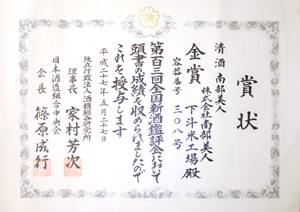 賞状
清酒 南部美人
株式会社南部美人
下斗米工場殿
容器番号 三〇八号
金賞
第百三回全国新酒鑑評会において
頭書の成績を収められましたので
これを授与します
平成二十七年五月二十七日
独立行政法人酒類総合研究所
理事長 家村芳次
日本酒造組合中央会
会長 篠原成行